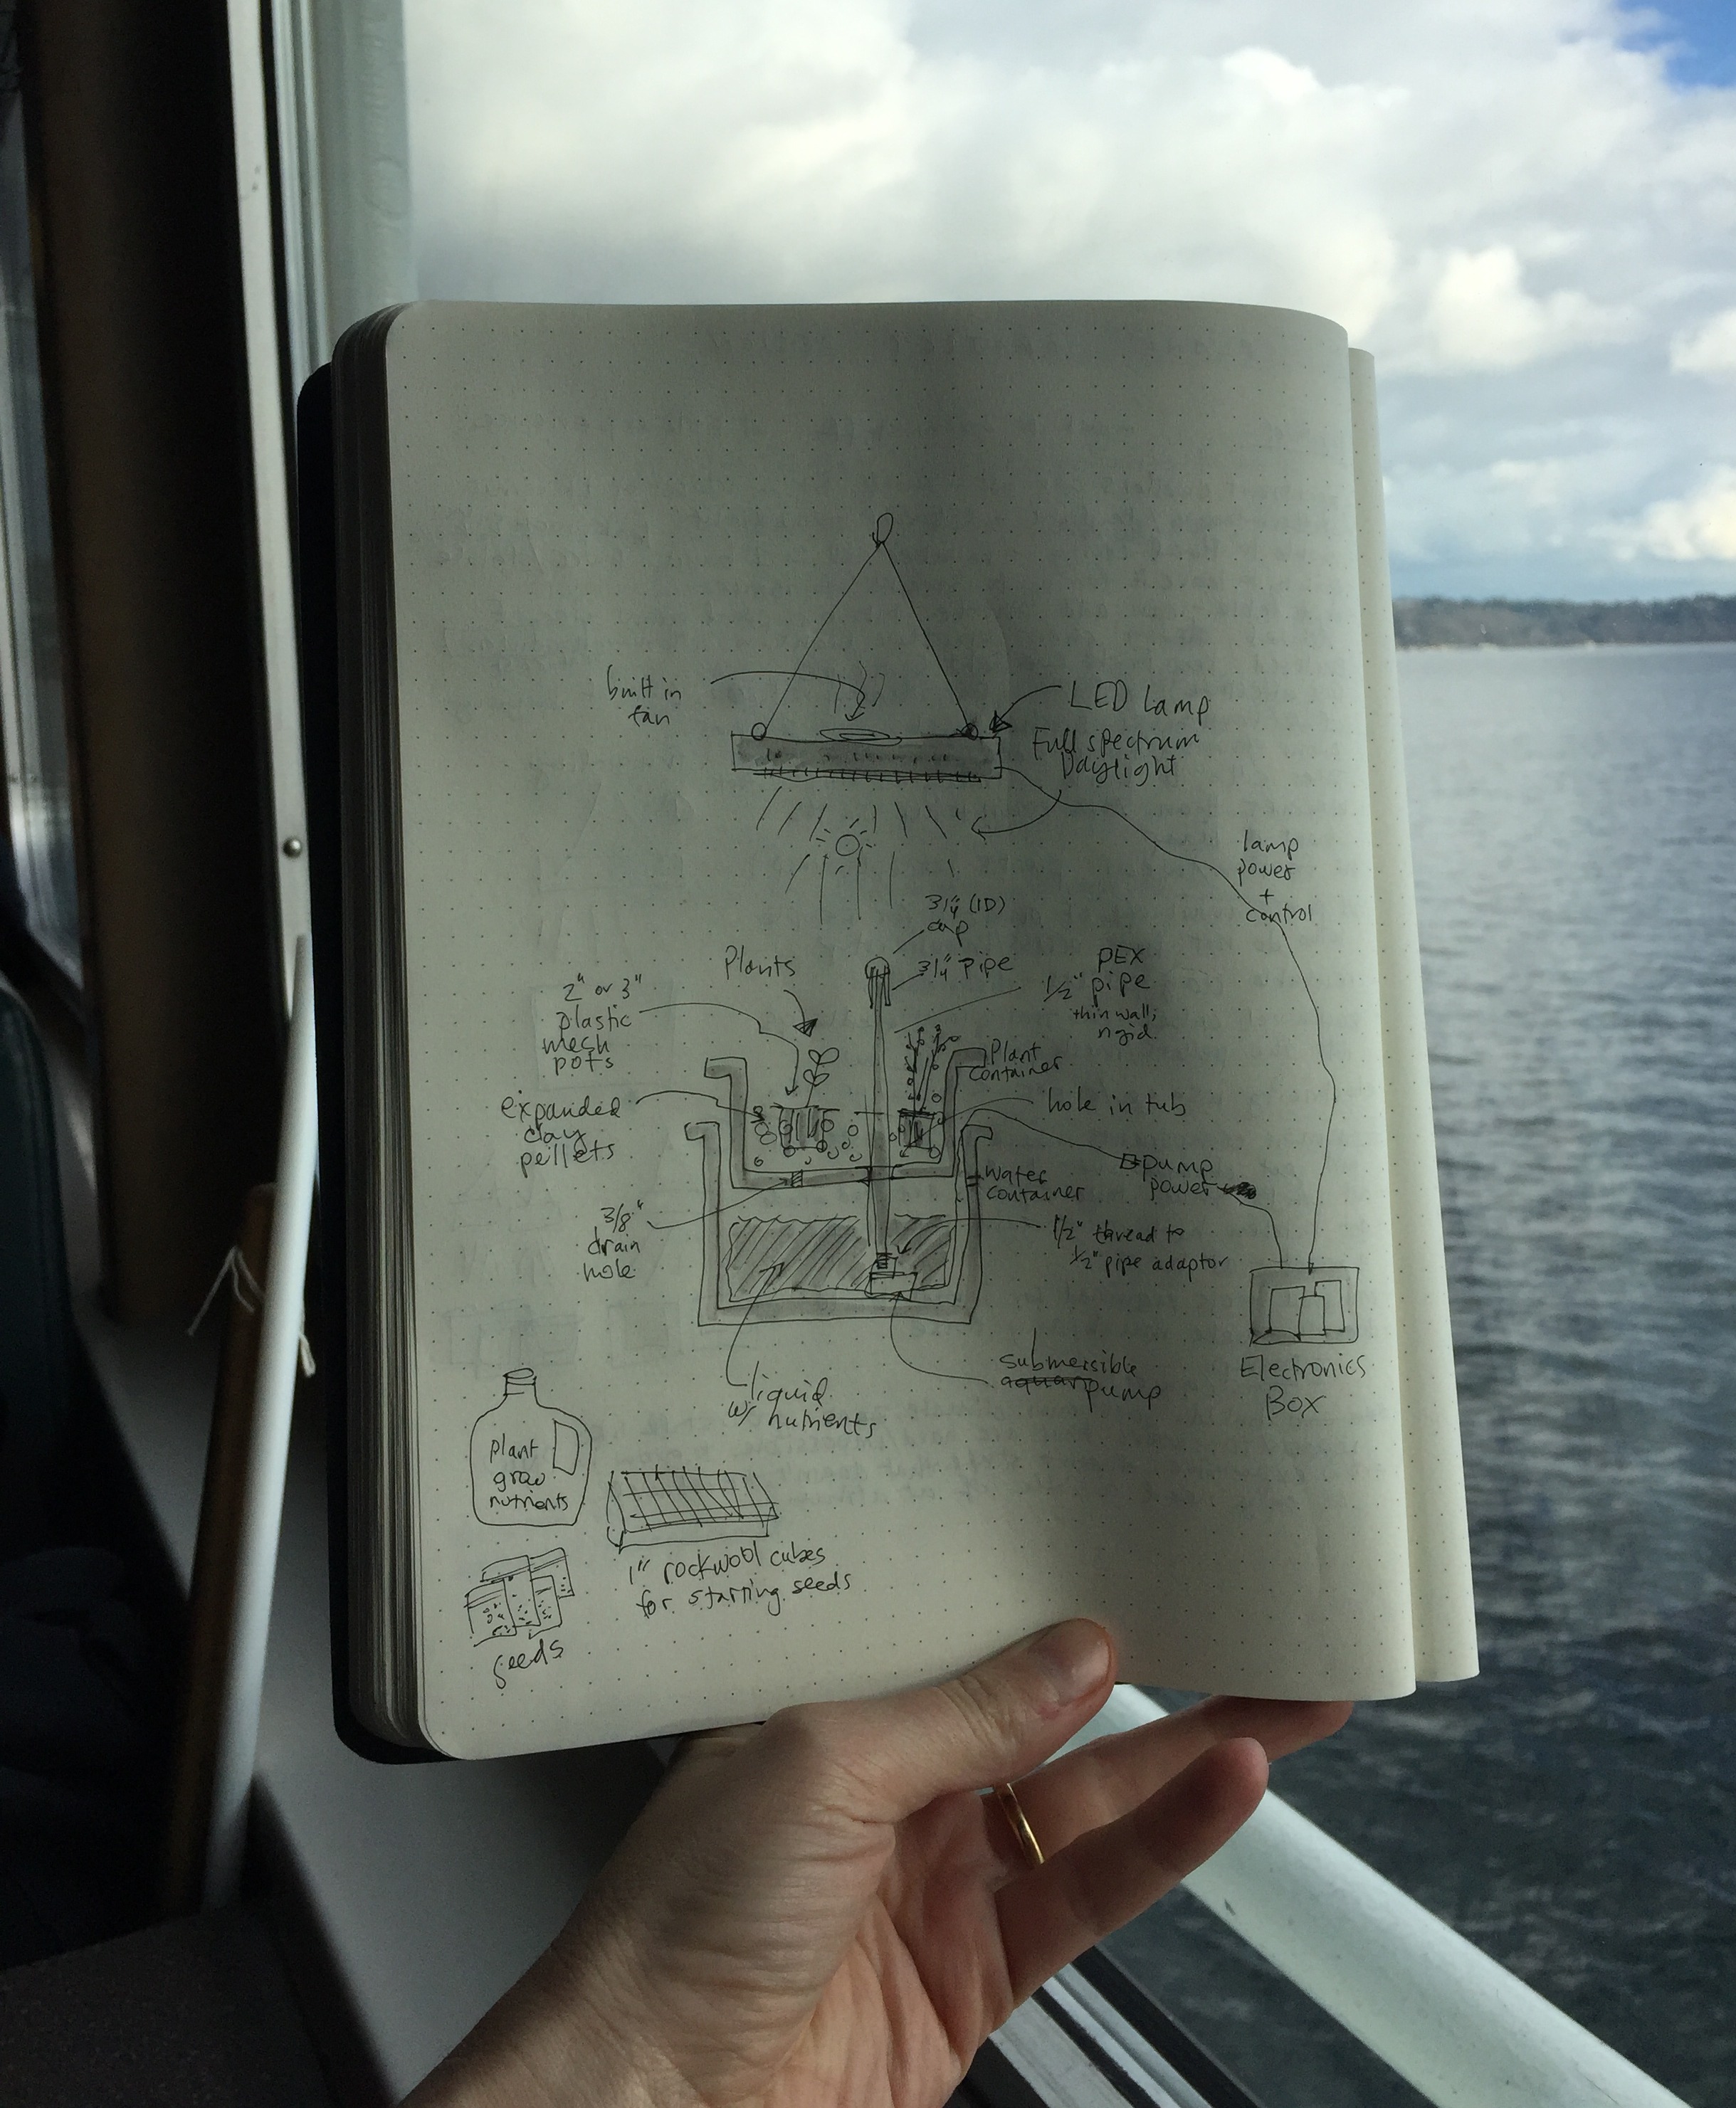 built in
fan
LED Lamp
Full spectrum
Daylight
lamp
power
+
control
3/4" (ID)
cap
3/4" pipe
Plants
PEX
1/2" pipe
thin wall,
rigid
2" or 3"
plastic
mesh
pots
Plant
container
expanded
clay
pellets
hole in tub
pump
power
water
container
3/8"
drain
hole
1/2" thread to
1/2" pipe adaptor
liquid
w/ nutrients
submersible
pump
Electronics
Box
plant
grow
nutrients
1" rockwool cubes
for starting seeds
seeds